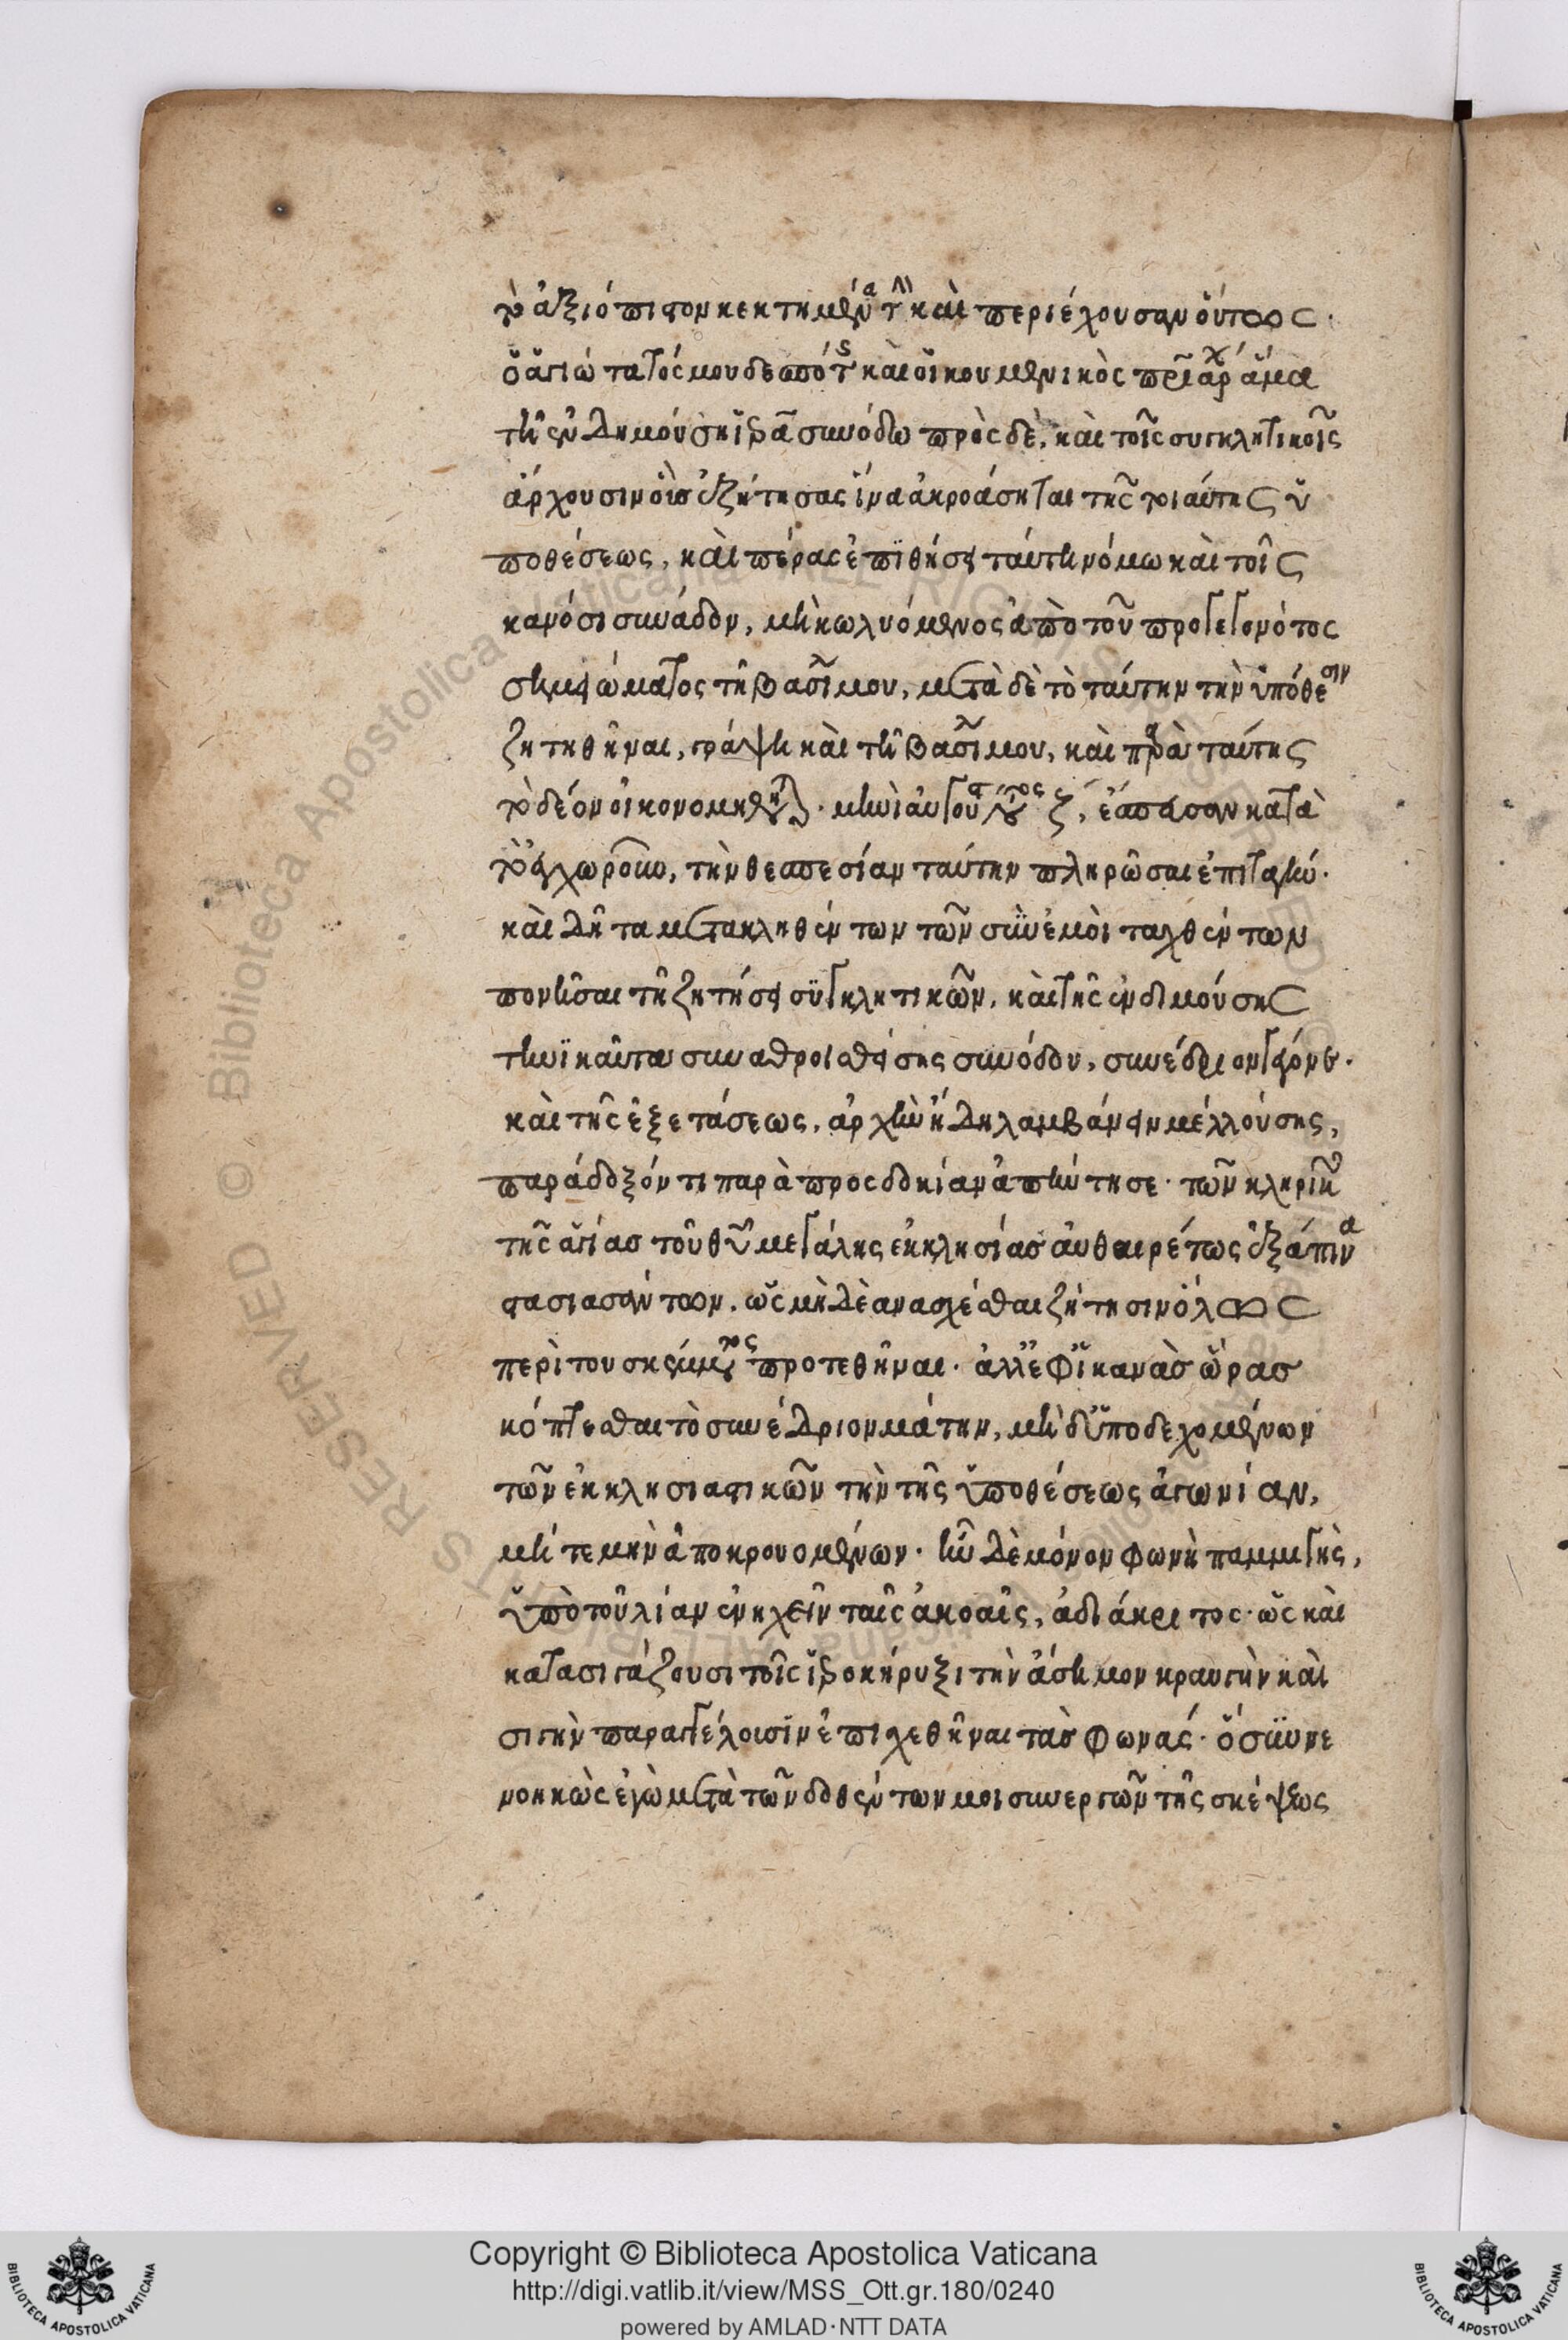 τὸ ἀξιόπιστον κεκτημένα τ καὶ περιέχουσαν οὕτως.
ὁ ἁγιώτατός μου δεσπότ καὶ οἰκουμενικὸς πριαρχ ἅμα
τῆ ἐνδημούση ἱρᾶ συνόδω πρὸς δὲ, καὶ τοῖς συγκλητικοῖς
ἄρχουσιν οἷς ἐζήτησας ἵνα ἀκροάσηται τῆς τοιαύτης ὑ
ποθέσεως, καὶ πέρας ἐπιθήσει ταύτη νόμω καὶ τοῖς
κανόσι συνάδον, μὴ κωλυόμενος ἀπὸ τοῦ προγεγονότος
σημειώματος τῆ βασιλ μου, μετὰ δὲ τὸ ταύτην τὴν ὑπόθεσιν
ζητηθῆναι, γράψη καὶ τῆ βασιλ μου, καὶ παρὰ ταύτης
τὸ δέον οἰκονομηθ. μηνὶ αὐγού ζ, ἔσπασαν κατὰ
τὸ ἐγχωροῦν, τὴν θεσπεσίαν ταύτην πληρῶσαι ἐπιταγήν.
καὶ δῆτα μετακληθέντων τῶν σὺν ἐμοὶ ταχθέντων
πονῆσαι τῆ ζητήσει συγκλητικῶν, καὶ τῆς ἐνδημούσης
τηνικαῦτα συναθροισθείσης συνόδου, συνέδριον γέγονε.
καὶ τῆς ἐξετάσεως, ἀρχὴν ἤδη λαμβάνειν μελλούσης,
παράδοξόν τι παρὰ προσδοκίαν ἀπήντησε. τῶν κληρικ
τῆς ἁγίας τοῦ θυ μεγάλης ἐκκλησίας αὐθαιρέτως ἐξάπινα
στασιασάντων. ὡς μηδὲ ἀνασχέσθαι ζήτησιν ὅλως
περὶ του σκεμμτος προτεθῆναι. ἀλλ' ἐφ' ἱκανὰς ὥρας
κόπτεσθαι τὸ συνέδριον μάτην, μὴ δ' ὑποδεχομένων
τῶν ἐκκλησιαστικῶν τὴν τῆς ὑποθέσεως ἀγωνίαν,
μήτε μὴν ἀποκρουομένων. ἦν δὲ μόνον φωνὴ παμμιγὴς,
ὑπὸ τοῦ λίαν ἐνηχεῖν ταῖς ἀκοαῖς, ἀδιάκριτος. ὡς καὶ
κατασιγάζουσι τοῖς ἱροκήρυξι τὴν ἄσημον κραυγὴν καὶ
σιγὴν παραγγέλουσιν ἐπιχεθῆναι τὰς φωνάς. ὃ συννε
νοηκὼς ἐγὼ μετὰ τῶν δοθέντων μοι συνεργῶν τῆς σκέψεως
Copyright © Biblioteca Apostolica Vaticana
http://digi.vatlib.it/view/MSS_Ott.gr.180/0240
powered by AMLAD·NTT DATA